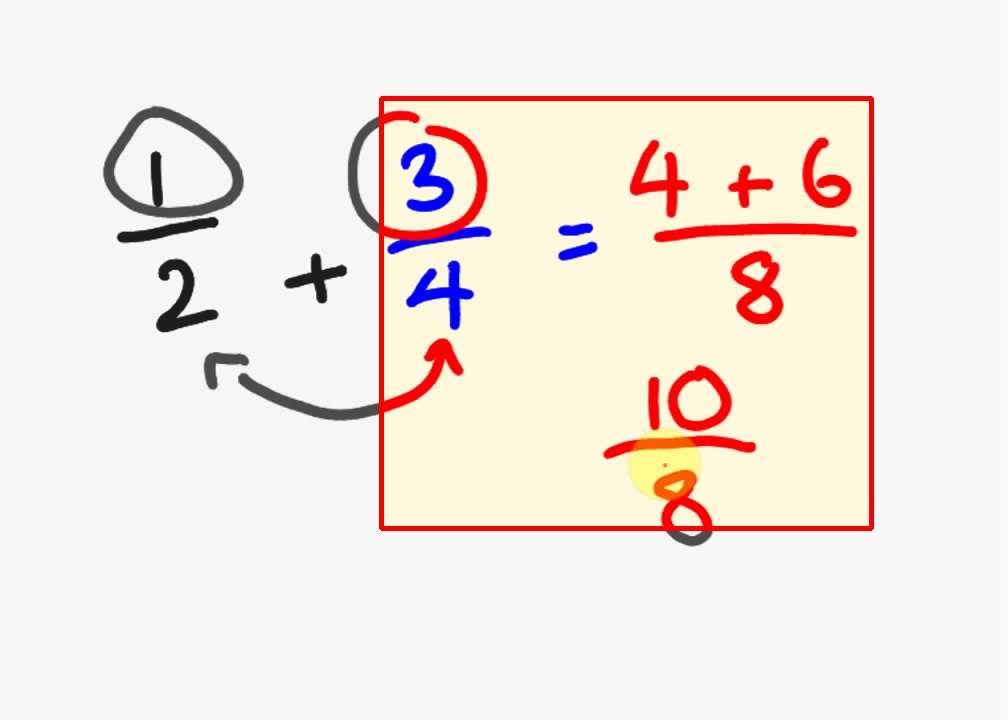 1/2 + 3/4 = 4 + 6/8
10/8